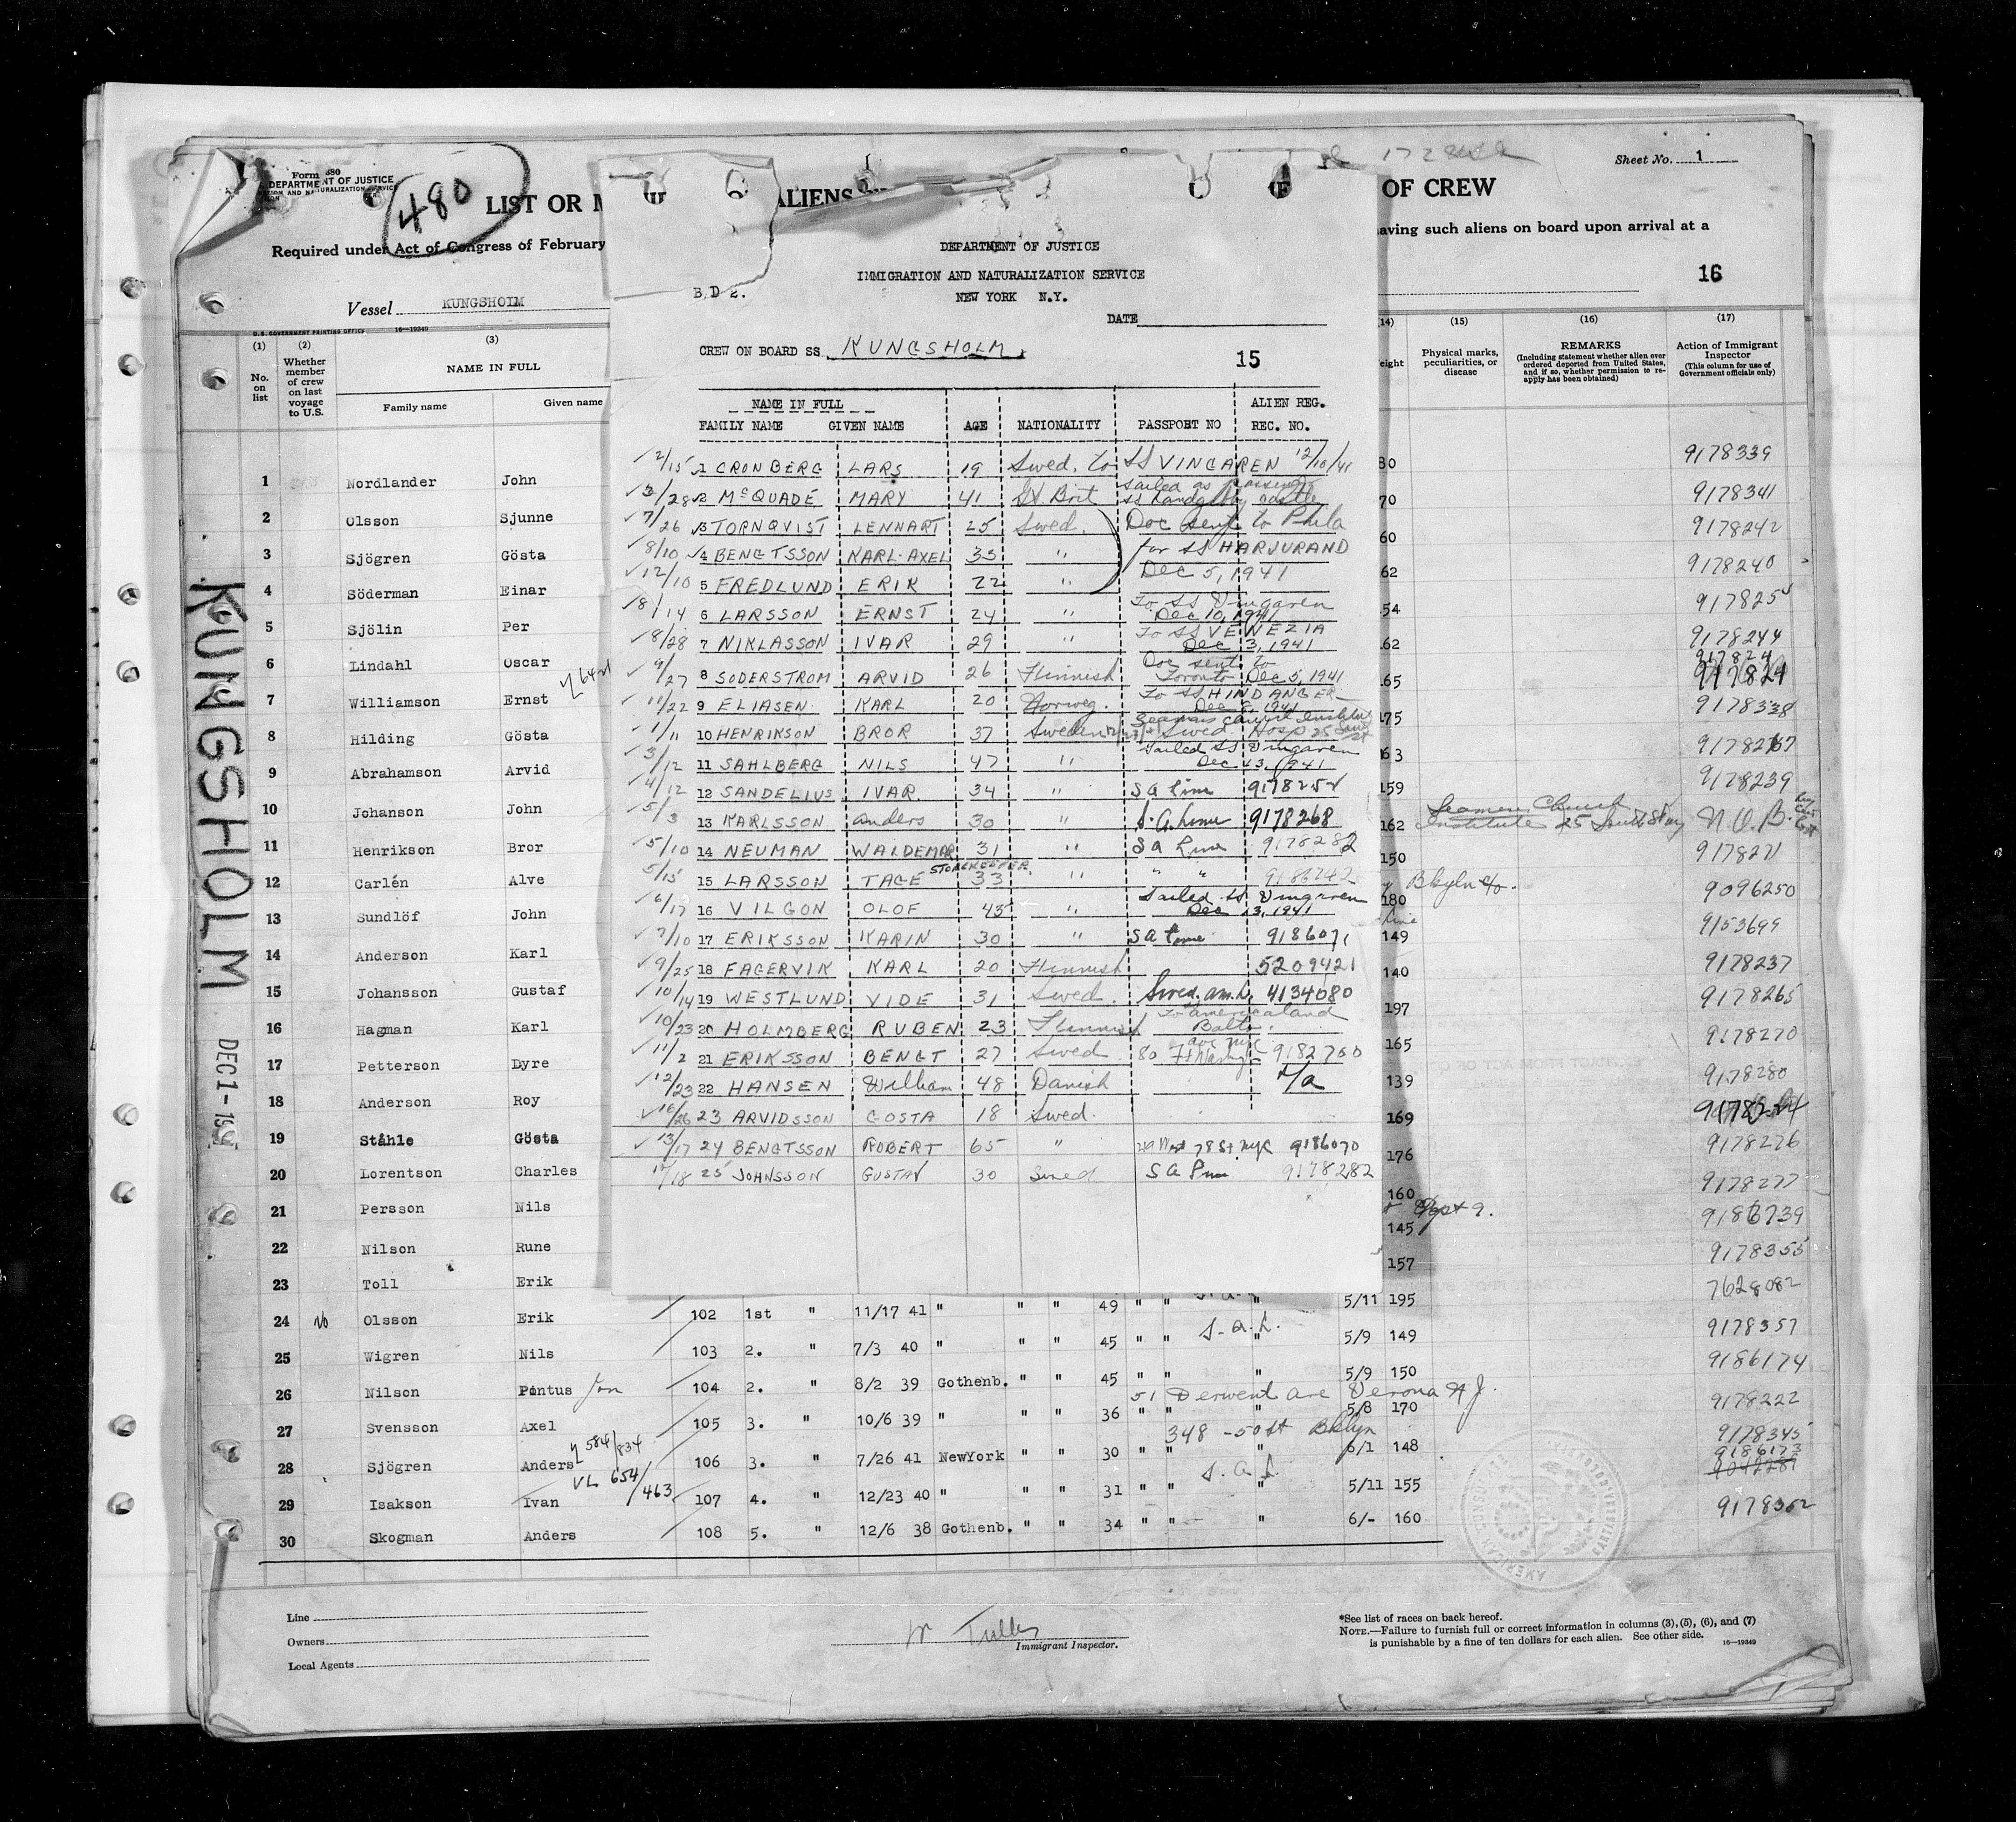 Form 680
DEPARTMENT OF JUSTICE
480
LIST OR
ALIENS
OF CREW
Sheet No. 1
Required under Act of Congress of February
having such aliens on board upon arrival at a
16
Vessel KUNGSHOLM
U.S. GOVERNMENT PRINTING OFFICE 16—19349
(1) (2) (3) (14) (15) (16) (17)
No. on list
Whether member of crew on last voyage to U.S.
NAME IN FULL
Family name Given name
Physical marks, peculiarities, or disease
REMARKS
(Including statement whether alien ever ordered deported from United States, and if so, whether permission to reapply has been obtained)
Action of Immigrant Inspector
(This column for use of Government officials only)
KUNGSHOLM
DEC 1 -
DEPARTMENT OF JUSTICE
IMMIGRATION AND NATURALIZATION SERVICE
NEW YORK N.Y.
DATE
CREW ON BOARD SS KUNGSHOLM
15
NAME IN FULL ALIEN REG.
FAMILY NAME GIVEN NAME AGE NATIONALITY PASSPORT NO REC. NO.
2/15 1 CRONBERG LARS 19 Swed. to SS VINGAREN 12/10/41
3/28 2 McQUADE MARY 41 Gt Brit Sailed as passenger
7/26 3 TORNQVIST LENNART 25 Swed. Doc sent to Phila
8/10 4 BENGTSSON KARL-AXEL 35 " for SS HARJURAND
12/10 5 FREDLUND ERIK 22 " Dec 5, 1941
8/14 6 LARSSON ERNST 24 " To SS Vingaren Dec 10, 1941
8/28 7 NIKLASSON IVAR 29 " To SS VENEZIA Dec 3, 1941
9/27 8 SODERSTROM ARVID 26 Finnish Doc sent to Toronto Dec 5, 1941
11/22 9 ELIASEN KARL 20 Norweg. To SS HINDANGER Dec 8, 1941
1/11 10 HENRIKSON BROR 37 Sweden Seamans Church Institute 25 South St
3/12 11 SAHLBERG NILS 47 " Sailed SS Vingaren Dec 13, 1941
4/12 12 SANDELIUS IVAR 34 " S A Line 9178252
5/3 13 KARLSSON Anders 30 " S. A. Line 9178268
5/10 14 NEUMAN WALDEMAR 31 " S A Line 9178282
5/15 15 LARSSON TAGE STOREKEEPER 33 " " " 9186242
6/17 16 VILGON OLOF 45 " Sailed SS Vingaren Dec 13, 1941
7/10 17 ERIKSSON KARIN 30 " S A Line 9186071
9/25 18 FAGERVIK KARL 20 Finnish 5209421
10/14 19 WESTLUND VIDE 31 Swed. Swed. Am. L. 4134080
10/23 20 HOLMBERG RUBEN 23 Finnish To Americaland Balto.
11/2 21 ERIKSSON BENGT 27 Swed 80 Ft Wash Ave NYC 9182760
12/23 22 HANSEN William 48 Danish
16/26 23 ARVIDSSON GOSTA 18 Swed.
13/17 24 BENGTSSON ROBERT 65 " West 78 St NYC 9186070
18 25 JOHNSSON GUSTAV 30 Swed S A Line 9178282
1 Nordlander John 9178339
2 Olsson Sjunne 9178341
3 Sjögren Gösta 9178242
4 Söderman Einar 62 9178240
5 Sjölin Per 917825
6 Lindahl Oscar 9178244
7 Williamson Ernst
8 Hilding Gösta 9178338
9 Abrahamson Arvid 9178267
10 Johanson John 159 9178239
11 Henrikson Bror 162 Seamen Church Institute 25 South St
12 Carlén Alve 150 917827
13 Sundlöf John 180 Bklyn 9096250
14 Anderson Karl 149 9153699
15 Johansson Gustaf 140 9178237
16 Hagman Karl 197 9178265
17 Petterson Dyre 165 9178270
18 Anderson Roy 139 9178280
19 Ståhle Gösta 169
20 Lorentson Charles 176 9178276
21 Persson Nils 160 9178277
22 Nilson Rune 145 9186739
23 Toll Erik 157 9178355
24 No Olsson Erik 102 1st " 11/17 41 " " " 49 " " " 5/11 195 7628082
25 Wigren Nils 103 2. " 7/3 40 " " " 45 " " S. A. L. " 5/9 149 9178357
26 Nilson Pontus Jon 104 2. " 8/2 39 Gothenb. " " 45 " " " 5/9 150 9186174
51 Derwent Ave Verona N J.
27 Svensson Axel 105 3. " 10/6 39 " " " 36 " " " 5/8 170 9178222
348 - 50 St Bklyn
28 Sjögren Anders 106 3. " 7/26 41 NewYork " " 30 " " " 6/1 148 9178345
9186173
29 Isakson Ivan VL 654/463 107 4. " 12/23 40 " " " 31 " " S. A. L. " 5/11 155
30 Skogman Anders 108 5. " 12/6 38 Gothenb. " " 34 " " " 6/- 160 9178352
Line
Owners
Local Agents
Immigrant Inspector.
*See list of races on back hereof.
NOTE.—Failure to furnish full or correct information in columns (3), (5), (6), and (7)
is punishable by a fine of ten dollars for each alien. See other side. 16—19349